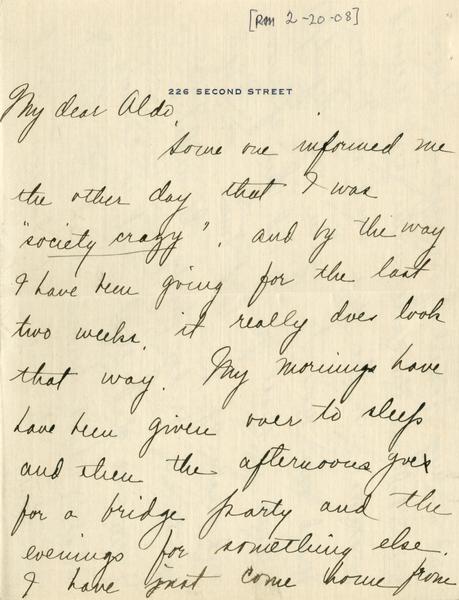 [RM 2-20-08]
226 SECOND STREET
My dear Aldo,
Some one informed me
the other day that I was
"society crazy", and by the way
I have been going for the last
two weeks, it really does look
that way. My mornings have
have been given over to sleep
and then the afternoons goes
for a bridge party and the
evenings for something else.
I have just come home from